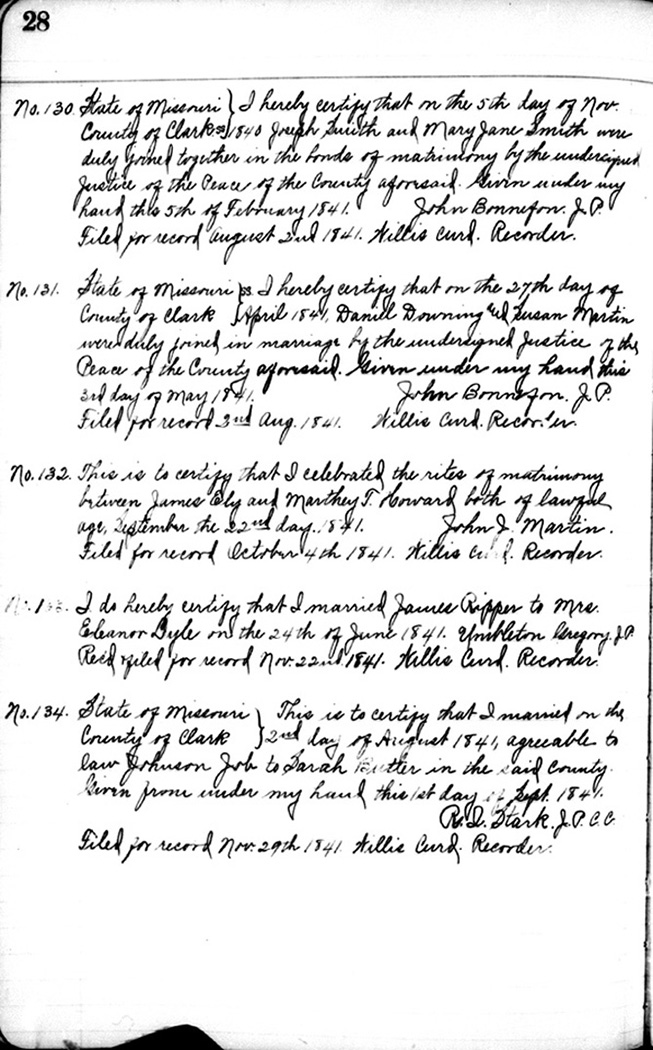 28
No. 130. State of Missouri } I hereby certify that on the 5th day of Nov.
County of Clark ss } 1840 Joseph Smith and Mary Jane Smith were
duly joined together in the bonds of matrimony by the undersigned
Justice of the Peace of the County aforesaid. Given under my
hand this 5th of February 1841. John Bonnefon. J.P.
Filed for record August 2nd 1841. Willis Curd. Recorder.
No. 131. State of Missouri } ss. I hereby certify that on the 27th day of
County of Clark } April 1841, Daniel Downing and Susan Martin
were duly joined in marriage by the undersigned Justice of the
Peace of the County aforesaid. Given under my hand this
3rd day of May 1841. John Bonnefon. J.P.
Filed for record 2nd Aug. 1841. Willis Curd. Recorder.
No. 132. This is to certify that I celebrated the rites of matrimony
between James Ely and Marthey T. Howard both of lawful
age, September the 22nd day. 1841. John J. Martin.
Filed for record October 4th 1841. Willis Curd. Recorder.
No. 133. I do hereby certify that I married James Ripper to Mrs.
Eleanor Dyle on the 24th of June 1841. Umbleton Gregory. J.P.
Rec'd & filed for record Nov. 22nd 1841. Willis Curd. Recorder.
No. 134. State of Missouri } This is to certify that I married on the
County of Clark } 2nd day of August 1841, agreeable to
law Johnson Job to Sarah Butler in the said County.
Given from under my hand this 1st day of Sept. 1841.
Stark. J.P.C.C.
Filed for record Nov. 29th 1841. Willis Curd. Recorder.